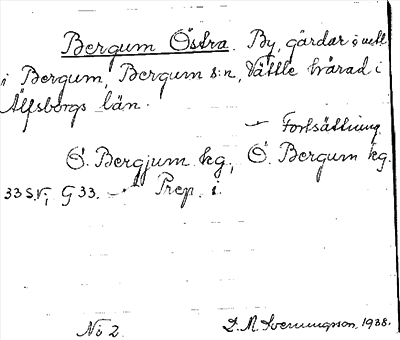 Bergum Östra. By, gårdar
i Bergum, Bergum s:n, Vättle härad i
Älfsborgs län.
– Fortsättning.
Ö. Bergjum hg, Ö. Bergum hg.
33 S.V; G 33. – Prep. i.
No 2. D. M. Svenningsson, 1938.